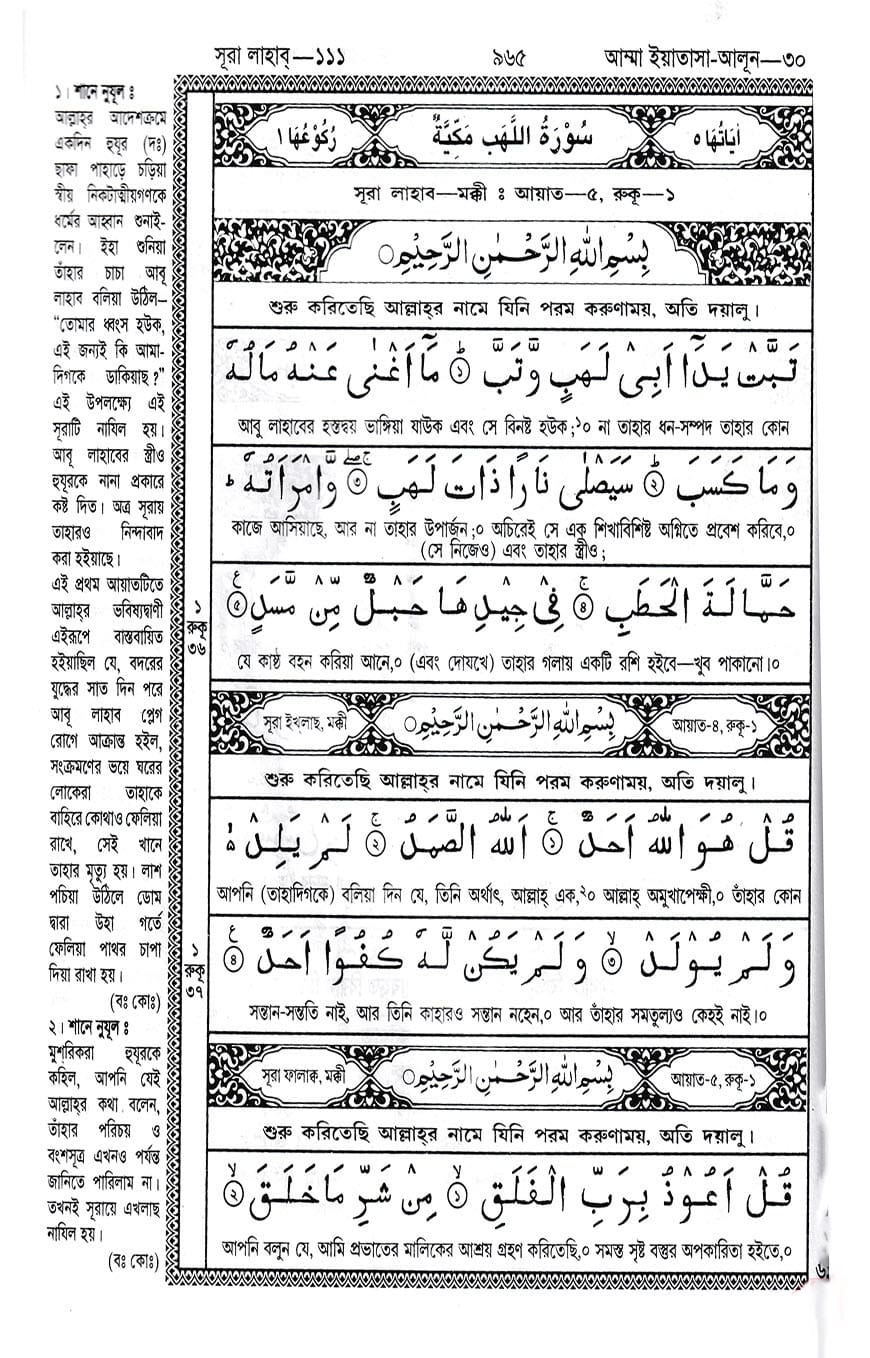 সূরা লাহাব্—১১১
৯৬৫
আম্মা ইয়াতাসা-আলূন—৩০
১। শানে নুযূল ঃ
আল্লাহ্‌র আদেশক্রমে
একদিন হুযূর (দঃ)
ছাফা পাহাড়ে চড়িয়া
স্বীয় নিকটাত্মীয়গণকে
ধর্মের আহ্বান শুনাই-
লেন। ইহা শুনিয়া
তাঁহার চাচা আবূ
লাহাব বলিয়া উঠিল–
“তোমার ধ্বংস হউক,
এই জন্যই কি আমা-
দিগকে ডাকিয়াছ?”
এই উপলক্ষ্যে এই
সূরাটি নাযিল হয়।
আবূ লাহাবের স্ত্রীও
হুযূরকে নানা প্রকারে
কষ্ট দিত। অত্র সূরায়
তাহারও নিন্দাবাদ
করা হইয়াছে।
এই প্রথম আয়াতটিতে
আল্লাহ্‌র ভবিষ্যদ্বাণী
এইরূপে বাস্তবায়িত
হইয়াছিল যে, বদরের
যুদ্ধের সাত দিন পরে
আবূ লাহাব প্লেগ
রোগে আক্রান্ত হইল,
সংক্রমণের ভয়ে ঘরের
লোকেরা তাহাকে
বাহিরে কোথাও ফেলিয়া
রাখে, সেই খানে
তাহার মৃত্যু হয়। লাশ
পচিয়া উঠিলে ডোম
দ্বারা উহা গর্তে
ফেলিয়া পাথর চাপা
দিয়া রাখা হয়।
(বঃ কোঃ)
২। শানে নুযূল ঃ
মুশরিকরা হুযূরকে
কহিল, আপনি যেই
আল্লাহ্‌র কথা বলেন,
তাঁহার পরিচয় ও
বংশসূত্র এখনও পর্যন্ত
জানিতে পারিলাম না।
তখনই সূরায়ে এখলাছ
নাযিল হয়।
(বঃ কোঃ)
اٰيَاتُهَا ٥
سُوْرَةُ اللَّهَبِ مَكِّيَّةٌ
رُكُوْعُهَا ١
সূরা লাহাব—মক্কী ঃ আয়াত—৫, রুকূ—১
بِسْمِ اللهِ الرَّحْمٰنِ الرَّحِيْمِ ○
শুরু করিতেছি আল্লাহ্‌র নামে যিনি পরম করুণাময়, অতি দয়ালু।
تَبَّتْ يَدَآ اَبِىْ لَهَبٍ وَّتَبَّ ۝১ؕ مَآ اَغْنٰى عَنْهُ مَالُهٗ
আবু লাহাবের হস্তদ্বয় ভাঙ্গিয়া যাউক এবং সে বিনষ্ট হউক;১০ না তাহার ধন-সম্পদ তাহার কোন
وَمَا كَسَبَ ۝২ؕ سَيَصْلٰى نَارًا ذَاتَ لَهَبٍ ۝৩ وَّامْرَاَتُهٗ ؕ
কাজে আসিয়াছে, আর না তাহার উপার্জন;০ অচিরেই সে এক শিখাবিশিষ্ট অগ্নিতে প্রবেশ করিবে,০
(সে নিজেও) এবং তাহার স্ত্রীও;
حَمَّالَةَ الْحَطَبِ ۝৪ۚ فِىْ جِيْدِهَا حَبْلٌ مِّنْ مَّسَدٍ ۝৫ ع
১
রুকূ
৩৬
যে কাষ্ঠ বহন করিয়া আনে,০ (এবং দোযখে) তাহার গলায় একটি রশি হইবে—খুব পাকানো।০
সূরা ইখলাছ, মক্কী
بِسْمِ اللهِ الرَّحْمٰنِ الرَّحِيْمِ ○
আয়াত-৪, রুকূ-১
শুরু করিতেছি আল্লাহ্‌র নামে যিনি পরম করুণাময়, অতি দয়ালু।
قُلْ هُوَ اللهُ اَحَدٌ ۝১ۚ اَللهُ الصَّمَدُ ۝২ۚ لَمْ يَلِدْ ۙ
আপনি (তাহাদিগকে) বলিয়া দিন যে, তিনি অর্থাৎ, আল্লাহ্ এক,২০ আল্লাহ্ অমুখাপেক্ষী,০ তাঁহার কোন
وَلَمْ يُوْلَدْ ۝৩ۙ وَلَمْ يَكُنْ لَّهٗ كُفُوًا اَحَدٌ ۝৪ ع
১
রুকূ
৩৭
সন্তান-সন্ততি নাই, আর তিনি কাহারও সন্তান নহেন,০ আর তাঁহার সমতুল্যও কেহই নাই।০
সূরা ফালাক, মক্কী
بِسْمِ اللهِ الرَّحْمٰنِ الرَّحِيْمِ ○
আয়াত-৫, রুকূ-১
শুরু করিতেছি আল্লাহ্‌র নামে যিনি পরম করুণাময়, অতি দয়ালু।
قُلْ اَعُوْذُ بِرَبِّ الْفَلَقِ ۝১ۙ مِنْ شَرِّ مَا خَلَقَ ۝২ۙ
আপনি বলুন যে, আমি প্রভাতের মালিকের আশ্রয় গ্রহণ করিতেছি,০ সমস্ত সৃষ্ট বস্তুর অপকারিতা হইতে,০